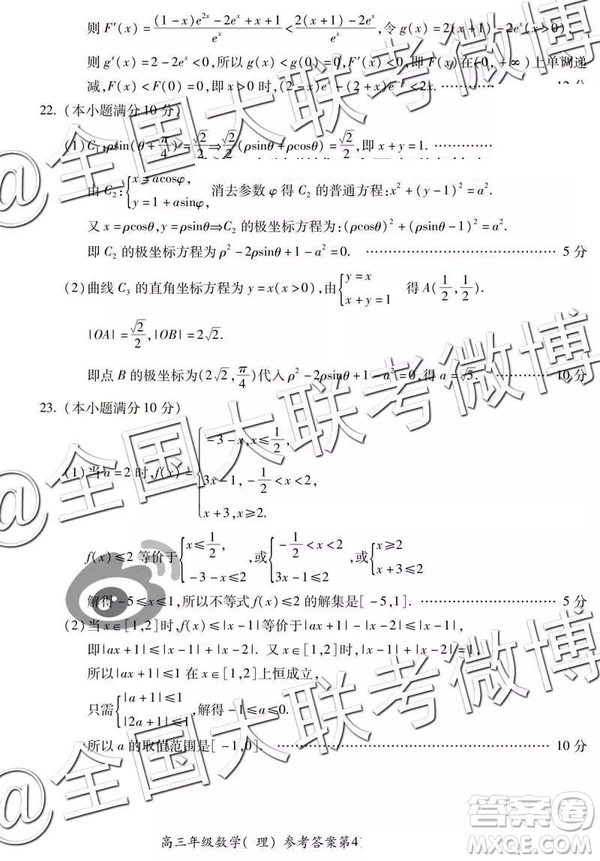 则 F'(x)=\frac{(1-x)e^{2x}-2e^{x}+x+1}{e^{x}}<\frac{2(x+1)-2e^{x}}{e^{x}},令 g(x)=2(x+1)-2e^{x}(x>0),
则 g'(x)=2-2e^{x}<0,所以 g(x)<g(0)=0,所以 F'(x)<0,即 F(x)在(0,+∞)上单调递
减,F(x)<F(0)=0,即 x>0 时,(2-x)e^{x}-(2+x)e^{-x}<2x.
22.(本小题满分 10 分)
(1)C_{1}:ρsin(θ+\frac{π}{4})=\frac{\sqrt{2}}{2}⇒\frac{\sqrt{2}}{2}(ρsinθ+ρcosθ)=\frac{\sqrt{2}}{2},即 x+y=1.
由 C_{2}:{x=acosφ, y=1+asinφ, 消去参数 φ 得 C_{2} 的普通方程:x^{2}+(y-1)^{2}=a^{2}
又 x=ρcosθ,y=ρsinθ⇒C_{2} 的极坐标方程为:(ρcosθ)^{2}+(ρsinθ-1)^{2}=a^{2}.
即 C_{2} 的极坐标方程为 ρ^{2}-2ρsinθ+1-a^{2}=0. …………………… 5 分
(2)曲线 C_{3} 的直角坐标方程为 y=x(x>0),由{y=x x+y=1 得 A(\frac{1}{2},\frac{1}{2})
|OA|=\frac{\sqrt{2}}{2},|OB|=2\sqrt{2}.
即点 B 的极坐标为(2\sqrt{2},\frac{π}{4})代入 ρ^{2}-2ρsinθ+1-a^{2}=0,得 a=\sqrt{5}. ……… 10 分
23.(本小题满分 10 分)
(1)当 a=2 时,f(x)={-3-x,x≤\frac{1}{2}, 3x-1,-\frac{1}{2}<x<2, x+3,x≥2.
f(x)≤2 等价于{x≤\frac{1}{2}, -3-x≤2,或{-\frac{1}{2}<x<2 3x-1≤2,或{x≥2 x+3≤2
解得-5≤x≤1,所以不等式 f(x)≤2 的解集是[-5,1]. …………………… 5 分
(2)当 x∈[1,2]时,f(x)≤|x-1|等价于|ax+1|-|x-2|≤|x-1|
即|ax+1|≤|x-2|+|x-1|. 又 x∈[1,2],|x-2|+|x-1|=1,
所以|ax+1|≤1 在 x∈[1,2]上恒成立,
只需{|a+1|≤1 |2a+1|≤1,解得-1≤a≤0.
所以 a 的取值范围是[-1,0]. …………………… 10 分
高三年级数学(理)参考答案第4
@全国大联考微博
@全国大联考微博
@全国大联考微博
答案圈
MXQE.COM